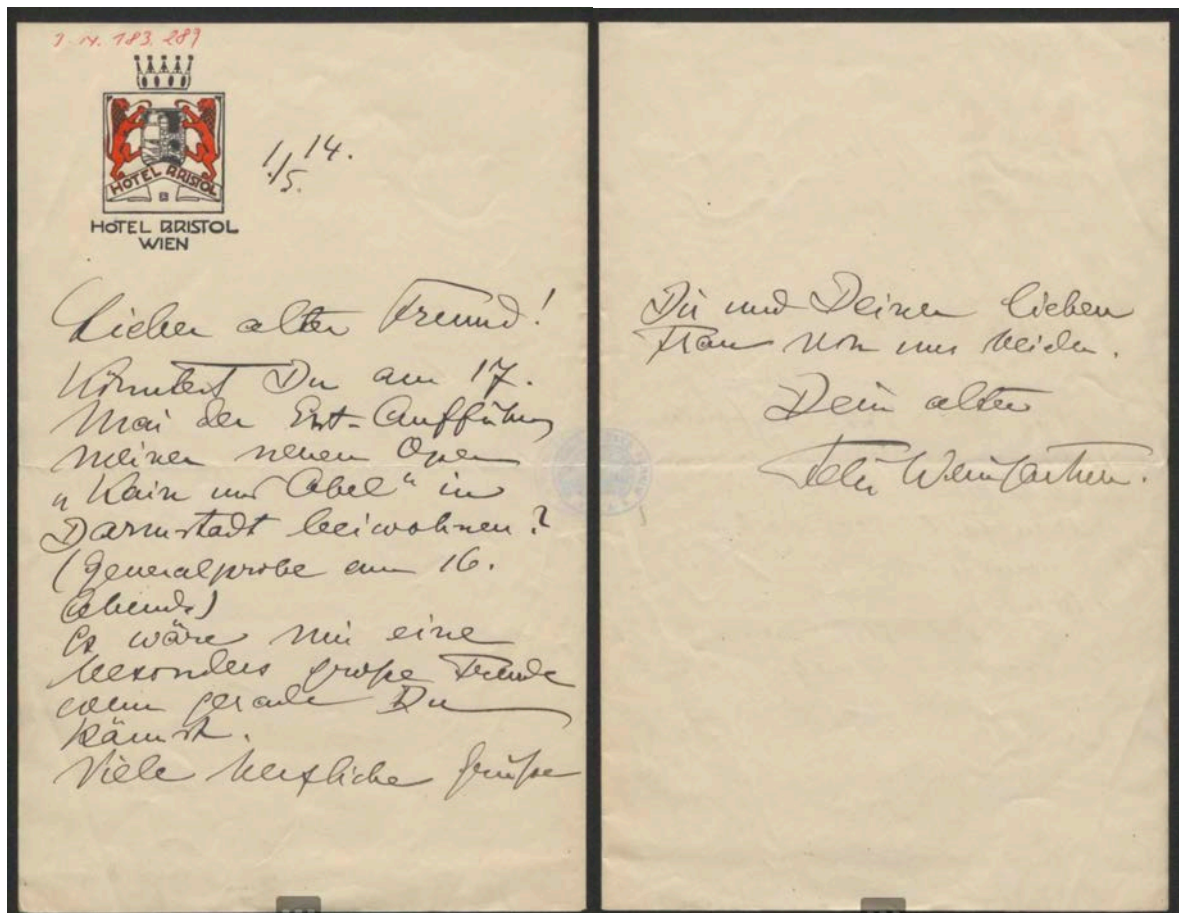 I. N. 183.289
HOTEL BRISTOL
HOTEL BRISTOL
WIEN
1./5. 14.
Lieber alter Freund!
Könntest Du am 17.
Mai der Erst-Aufführung
meiner neuen Oper
„Kain und Abel“ in
Darmstadt beiwohnen?
(Generalprobe am 16.
abends)
Es wäre mir eine
besonders große Freude
wenn gerade Du
kämst.
Viele herzliche Grüße
Dir und Deiner lieben
Frau von uns beiden.
Dein alter
Felix Weingartner.